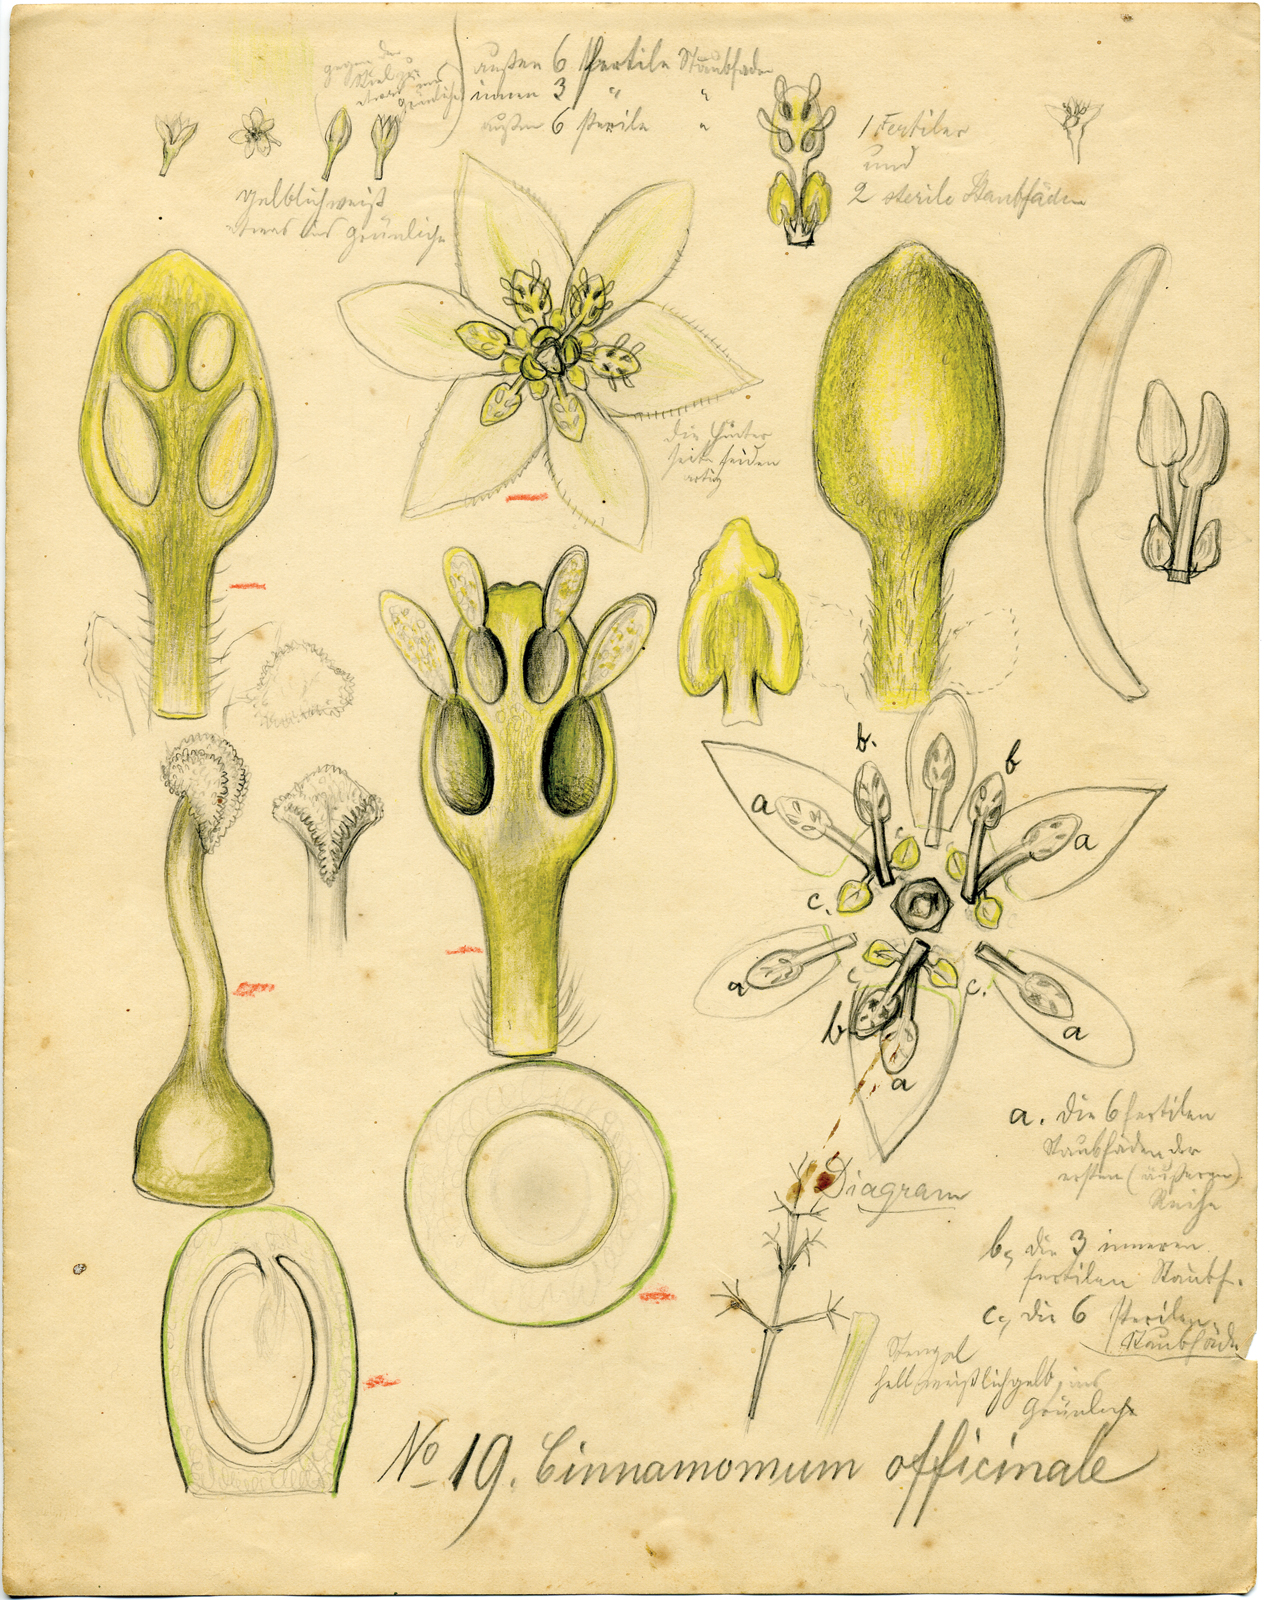 außen 6 fertile Staubfäden
innen 3 " "
außen 6 sterile "
gegen den
gelblichweiß
etwas ins grünliche
1 Fertiler
und
2 sterile Staubfäden
die Hinter
seite seiden
artig
b.
b
a
a
c
c.
a
c
c.
b
a
a
a. die 6 fertilen
Staubfäden der
ersten (äußeren)
Reihe
b, die 3 inneren
fertilen Staubf.
c, die 6 sterilen
Staubfäden
Diagram
Stengel
hell weißlichgelb, ins
Grünliche
No 19. Cinnamomum officinale